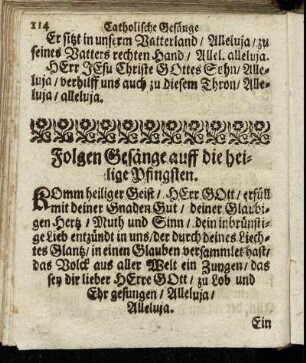 214 Catholische Gesänge
Er sitzt in unserm Vatterland / Alleluja / zu
seines Vatters rechten Hand / Allel. alleluja.
HErr JEsu Christe GOttes Sohn / Alle-
luja / verhilff uns auch zu diesem Thron / Alle-
luja / alleluja.
Folgen Gesänge auff die hei-
lige Pfingsten.
KOmm heiliger Geist / HErr GOtt / erfüll
mit deiner Gnaden Gut / deiner Glaubi-
gen Hertz / Muth und Sinn / dein inbrünsti-
ge Lieb entzündt in uns / der durch deines Liech-
tes Glantz / in einen Glauben versammlet hast /
das Volck aus aller Welt ein Zungen / das
sey dir lieber HErre GOtt / zu Lob und
Ehr gesungen / Alleluja /
Alleluja.
Ein